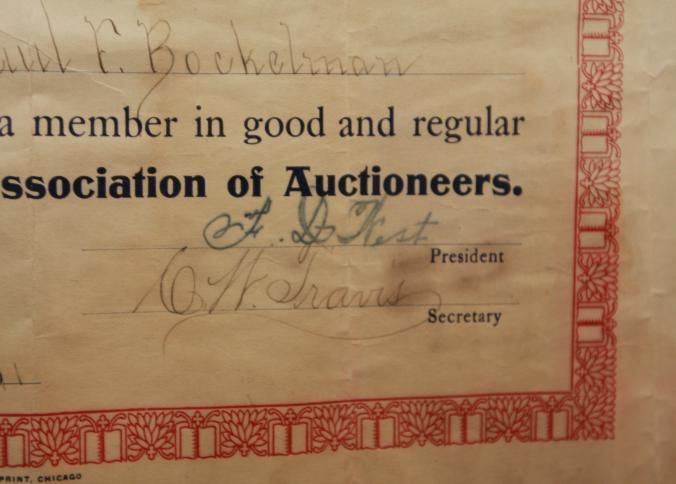 F. Bockelman
a member in good and regular
ssociation of Auctioneers.
F. D. West
President
C. W. Travis
Secretary
PRINT, CHICAGO